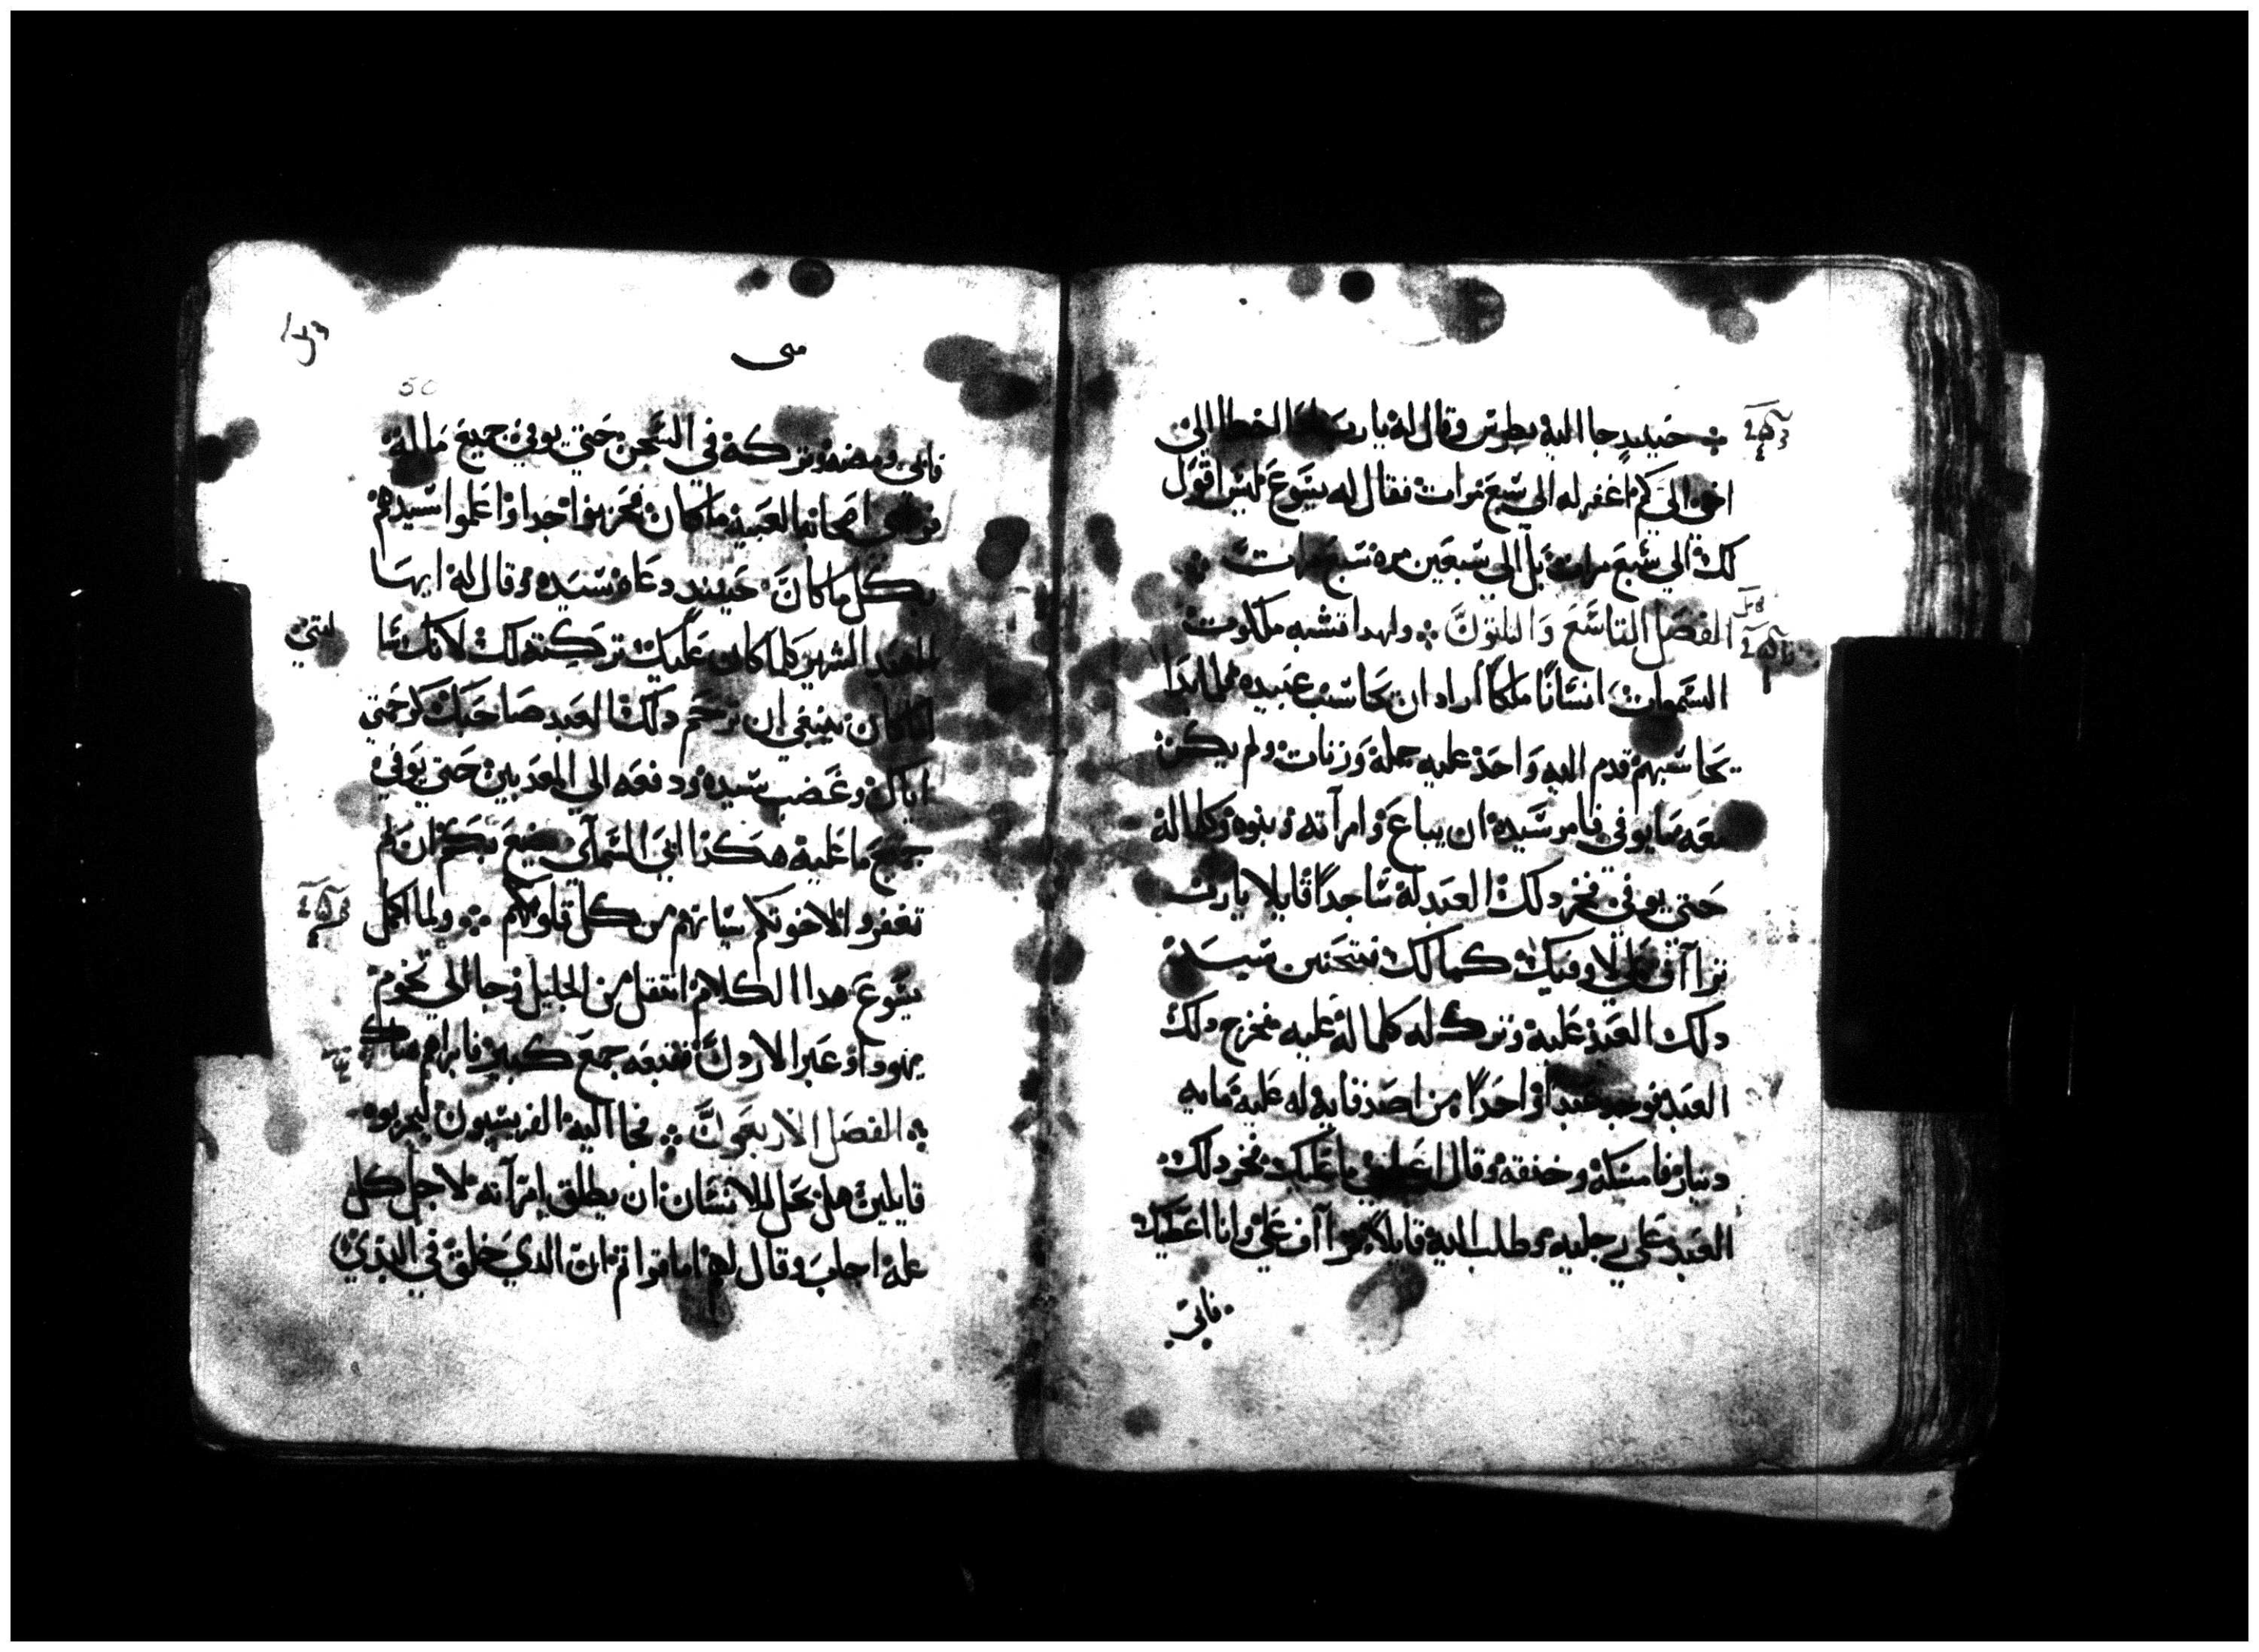 حينيدٍ جا اليه بطرس وقال له يارب اذا اخطا الي
اخي الي كم اغفر له الي سبع مرات فقال له يسوع ليس اقول
لك الي سبع مرات بل الي سبعين مره سبع مرات
الفصل التاسع والتلتون ولهدا تشبه ملكوت
السموات انسانا ملكا اراد ان يحاسب عبيده فلما بدا
يحاسبهم قدم اليه واحد عليه جمله وزنات ولم يكن
معه ما يوفي فامر سيده ان يباع وامرآته وبنوه وكلما له
حتي يوفي فخر دلك العبد له ساجداً قايلا يارب
تراآف علي لاوفيك كما لك فتحنن سيد
دلك العبد عليه وترك له كلما له عليه فخرج دلك
العبد فوجد عبدا واحداً من اصدقايه له عليه مايه
دينار فامسكه وخنقه وقال اعطيني ما عليك فخر دلك
العبد علي رجليه وطلب اليه قايلا تراآف علي وانا اعطيك
فابي
متى
50
فابي ومضه وتركه في السجن حتي يوفي جميع ماله
فراي اصحابه العبيد ما كان فحزنوا جدا واعلموا سيدهم
بكل ما كان حينيد دعاه سيده وقال له ايها
العبد الشرير كلما كان عليك تركته لك لانك سا
لتني
اما كان ينبغي ان ترحم دلك العبد صاحبك كرحمتي
اياك وغضب سيده ودفعه الي المعدبين حتي يوفي
جميع ما عليه هكدا ابي السمآي يصنع بكم ان لم
تغفروا لاخوتكم سياتهم من كل قلوبكم ولما اكمل
يسوع هدا الكلام انتقل من الجليل وجا الي تخوم
يهودا وعبر الاردن فتبعه جمع كبير فابراهم هناك
الفصل الاربعون فجا اليه الفريسيون ليجربوه
قايلين هل يحل للانسان ان يطلق امرآته لاجل كل
عله اجاب وقال لهم اما قراتم ان الدي خلق في البدي